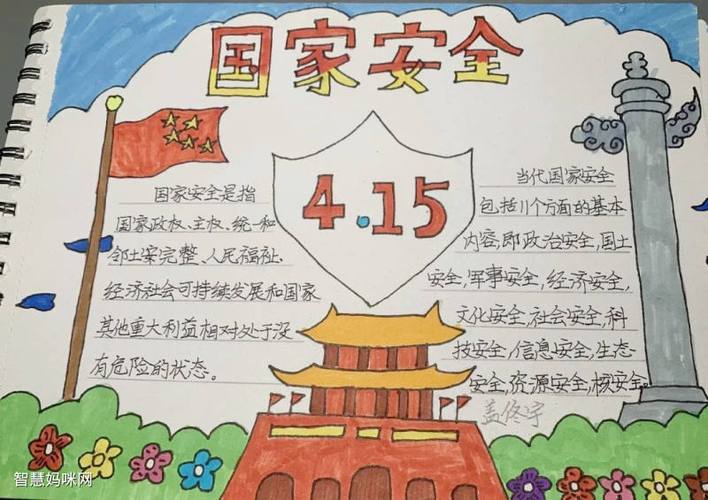 国家安全
4.15
国家安全是指
国家政权、主权、统一和
邻土安完整、人民福祉、
经济社会可持续发展和国家
其他重大利益相对处于没
有危险的状态。
当代国家安全
包括11个方面的基本
内容,即政治安全,国土
安全,军事安全,经济安全,
文化安全,社会安全,科
技安全,信息安全,生态
安全,资源安全,核安全。
智慧妈咪网